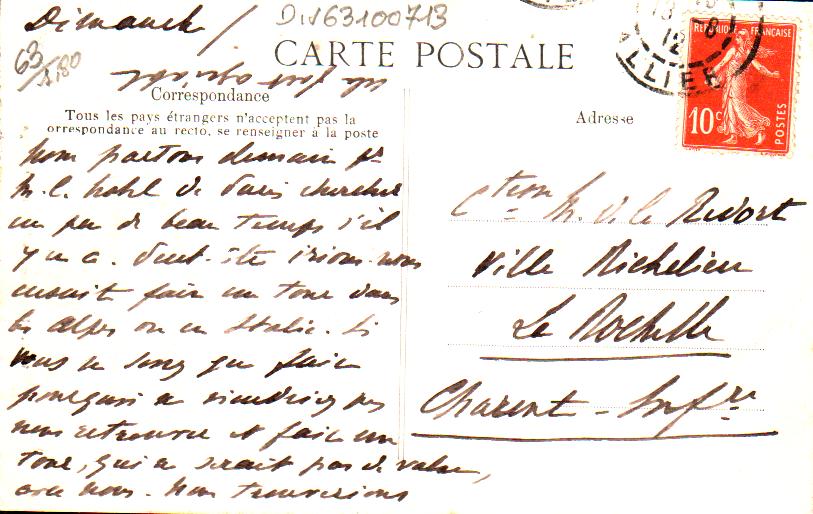 Dimanche
DIV63100713
63
A.80
CARTE POSTALE
Correspondance
Tous les pays étrangers n'acceptent pas la
orrespondance au recto, se renseigner à la poste
Adresse
RÉPUBLIQUE FRANÇAISE
10c
POSTES
12
ALLIER
Nous partons demain pr
M.C. hotel de Paris chercher
un peu de beau temps s'il
y en a. Peut-être irions-nous
ensuite faire un tour dans
les Alpes ou en Italie. Si
vous ne savez que faire
pourquoi ne viendriez vous pas
nous retrouver et faire un
tour, qui ne serait pas de valse,
avec nous. Nous trouverions
Ctesse R. de le Redort
Ville Richelieu
La Rochelle
Charente-Infre